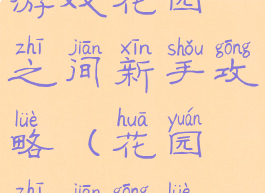 游戏花园
zhī jiān xīn shǒu gōng
之间新手攻
lüè huā yuán
略（花园
zhī jiān gōng lüè